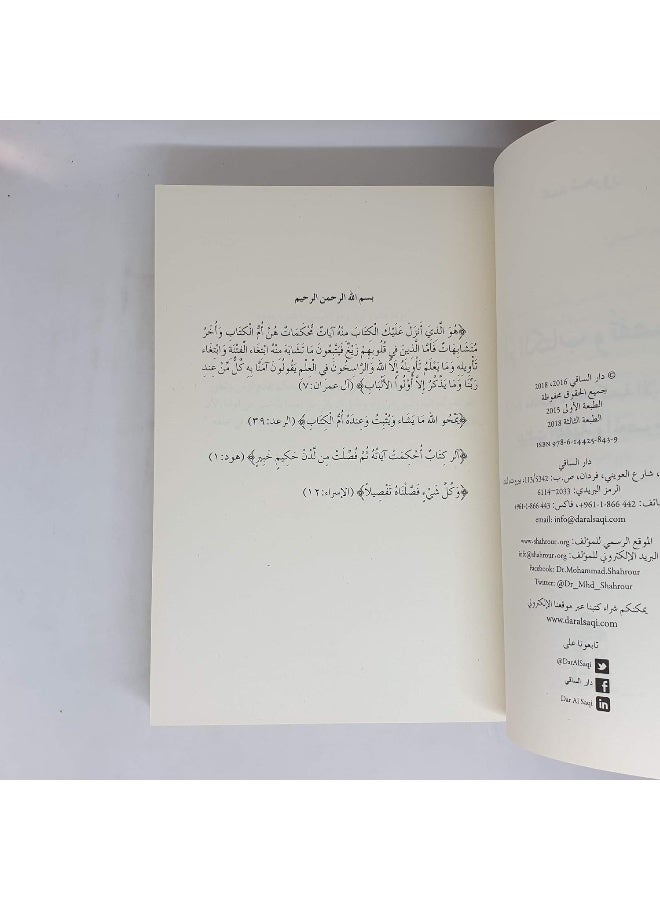 © دار الساقي 2016، 2018
جميع الحقوق محفوظة
الطبعة الأولى 2015
الطبعة الثالثة 2018
ISBN 978-6-14425-843-9
دار الساقي
، شارع العويني، فردان، ص.ب: 113/5342، بيروت، لبنان
الرمز البريدي: 2033–6114
هاتف: 442 866 1-961+، فاكس: 443 866 1-961+
email: info@daralsaqi.com
الموقع الرسمي للمؤلف: www.shahrour.org
البريد الإلكتروني للمؤلف: info@shahrour.org
Facebook: Dr.Mohammad.Shahrour
Twitter: @Dr_Mhd_Shahrour
يمكنكم شراء كتبنا عبر موقعنا الإلكتروني
www.daralsaqi.com
تابعونا على
@DarAlSaqi
دار الساقي
Dar Al Saqi
بسم الله الرحمن الرحيم
﴿هُوَ الَّذِي أَنزَلَ عَلَيْكَ الْكِتَابَ مِنْهُ آيَاتٌ مُّحْكَمَاتٌ هُنَّ أُمُّ الْكِتَابِ وَأُخَرُ
مُتَشَابِهَاتٌ فَأَمَّا الَّذِينَ فِي قُلُوبِهِمْ زَيْغٌ فَيَتَّبِعُونَ مَا تَشَابَهَ مِنْهُ ابْتِغَاءَ الْفِتْنَةِ وَابْتِغَاءَ
تَأْوِيلِهِ وَمَا يَعْلَمُ تَأْوِيلَهُ إِلَّا اللَّهُ وَالرَّاسِخُونَ فِي الْعِلْمِ يَقُولُونَ آمَنَّا بِهِ كُلٌّ مِّنْ عِندِ
رَبِّنَا وَمَا يَذَّكَّرُ إِلَّا أُوْلُواْ الأَلْبَابِ﴾ (آل عمران: ٧)
﴿يَمْحُو اللَّهُ مَا يَشَاء وَيُثْبِتُ وَعِندَهُ أُمُّ الْكِتَابِ﴾ (الرعد: ٣٩)
﴿الَر كِتَابٌ أُحْكِمَتْ آيَاتُهُ ثُمَّ فُصِّلَتْ مِن لَّدُنْ حَكِيمٍ خَبِيرٍ﴾ (هود: ١)
﴿وَكُلَّ شَيْءٍ فَصَّلْنَاهُ تَفْصِيلاً﴾ (الإسراء: ١٢)